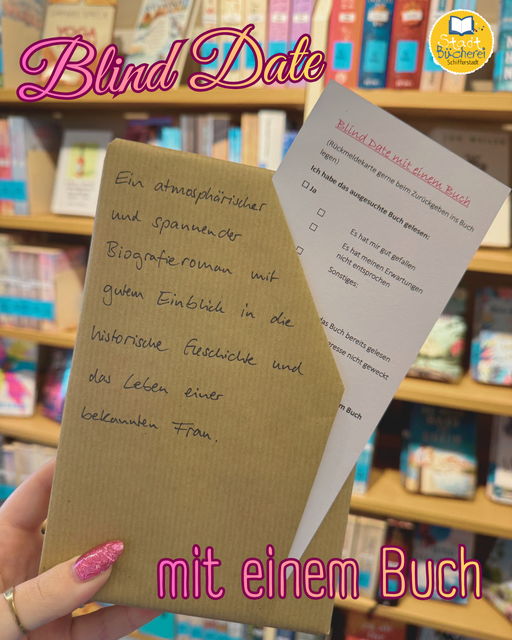 Blind Date
Stadt
Bücherei
Schifferstadt
Ein atmosphärischer
und spannender
Biografieroman mit
gutem Einblick in die
historische Geschichte und
das Leben einer
bekannten Frau.
Blind Date mit einem Buch
(Rückmeldekarte gerne beim Zurückgeben ins Buch
legen)
Ich habe das ausgesuchte Buch gelesen:
Ja
Es hat mir gut gefallen
Es hat meinen Erwartungen
nicht entsprochen
Sonstiges:
das Buch bereits gelesen
resse nicht geweckt
m Buch
mit einem Buch